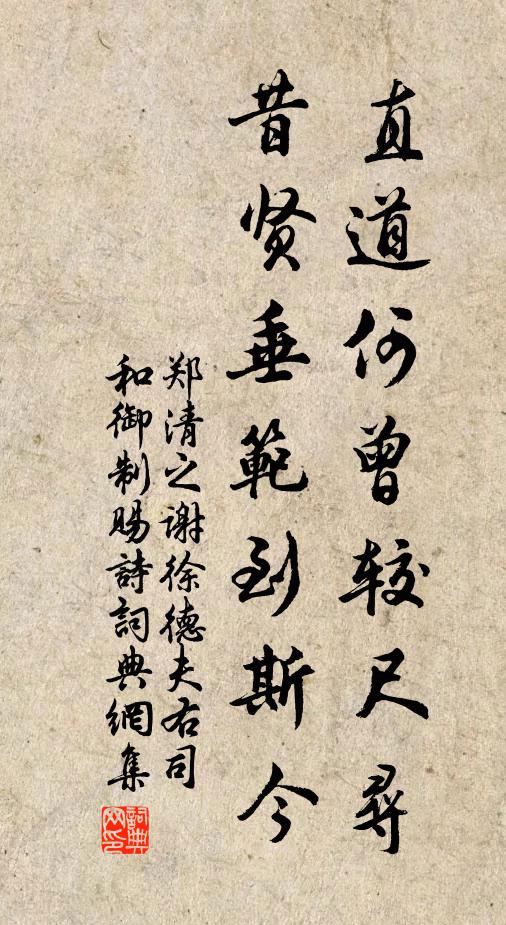 直道何曾较尺尋
昔贤垂範到斯今
郑清之谢徐德夫右司
和御制賜詩詞典網集
詞典
网印